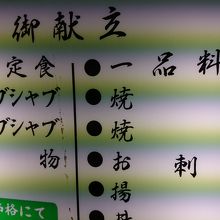 御献立
●一品料
●焼
●焼
●お刺
●揚
定食
ブシャブ
ブシャブ
物
格にて